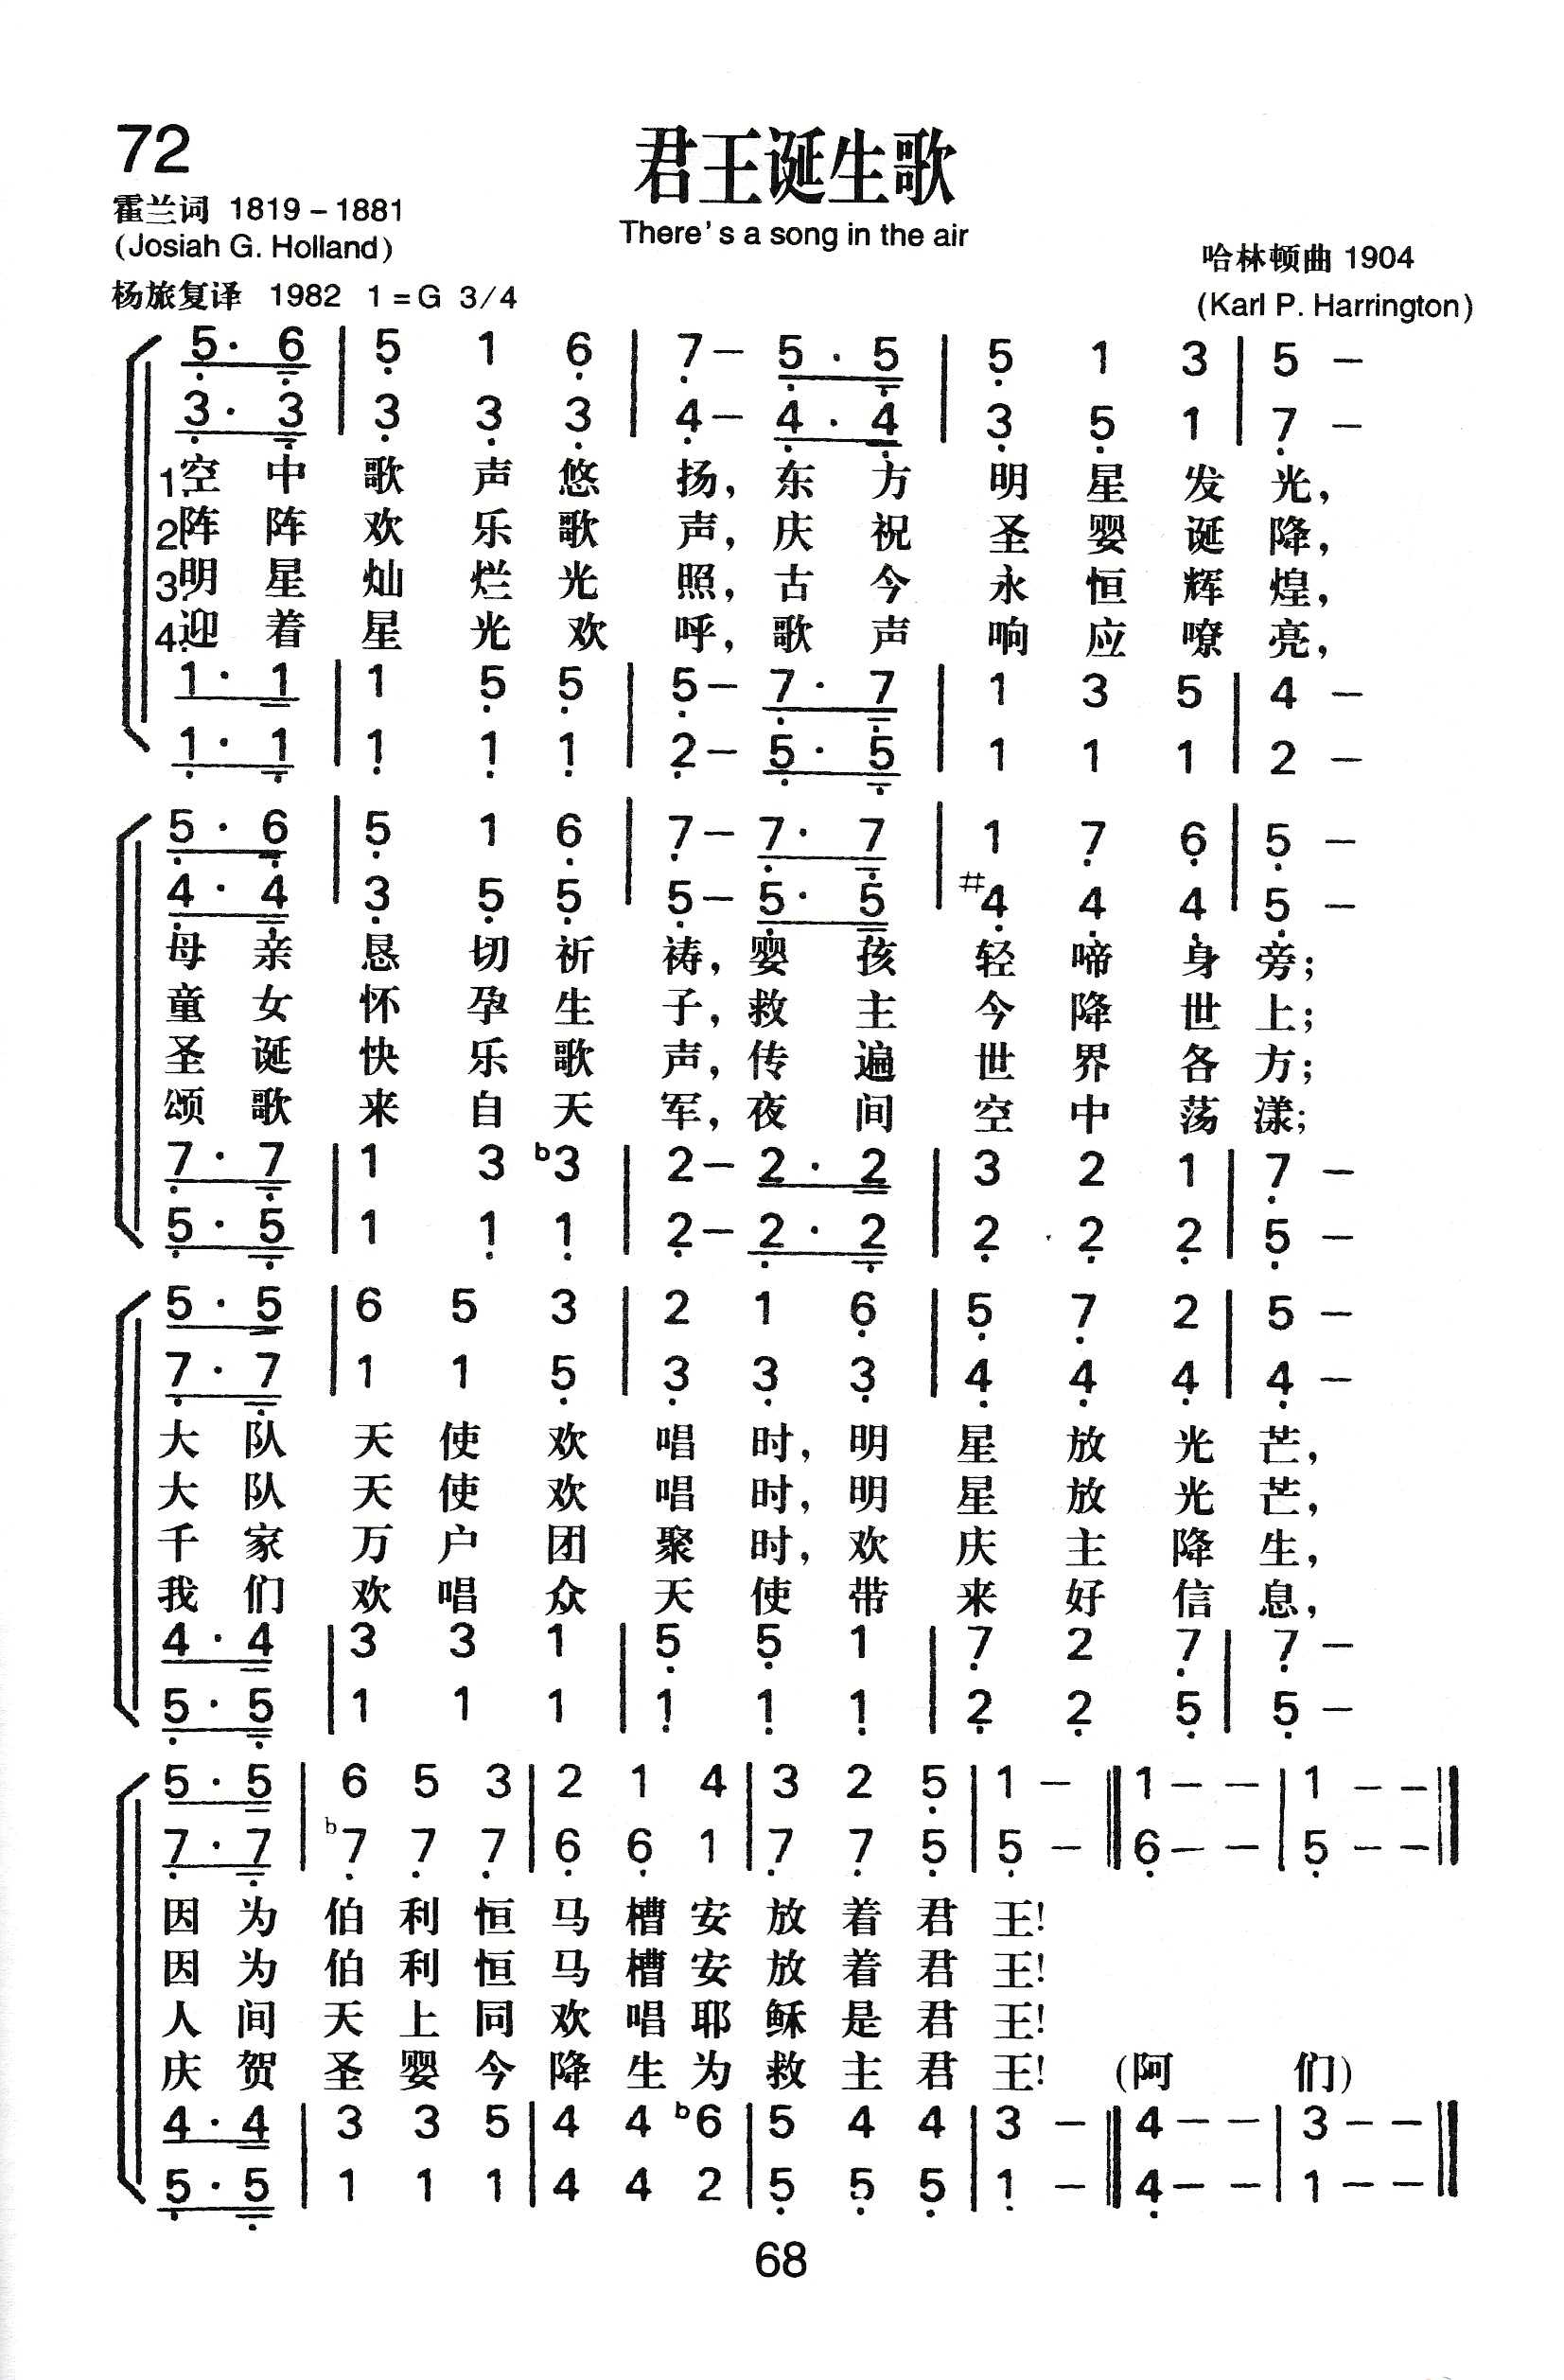 72
君王诞生歌
霍兰词 1819－1881
There's a song in the air
(Josiah G. Holland)
哈林顿曲 1904
杨旅复译 1982 1=G 3/4
(Karl P. Harrington)
5· 6 | 5 1 6 | 7－ 5·5 | 5 1 3 | 5 －
3· 3 | 3 3 3 | 4－ 4·4 | 3 5 1 | 7 －
1.空中歌声悠扬，东方明星发光，
2.阵阵欢乐歌声，庆祝圣婴诞降，
3.明星灿烂光照，古今永恒辉煌，
4.迎着星光欢呼，歌声响应嘹亮，
1· 1 | 1 5 5 | 5－ 7·7 | 1 3 5 | 4 －
1· 1 | 1 1 1 | 2－ 5·5 | 1 1 1 | 2 －
5·6 | 5 1 6 | 7－ 7·7 | 1 7 6 | 5 －
4·4 | 3 5 5 | 5－ 5·5 | #4 4 4 | 5 －
母亲恳切祈祷，婴孩轻啼身旁；
童女怀孕生子，救主今降世上；
圣诞快乐歌声，传遍世界各方；
颂歌来自天军，夜间空中荡漾；
7·7 | 1 3 b3 | 2－ 2·2 | 3 2 1 | 7 －
5·5 | 1 1 1 | 2－ 2·2 | 2 2 2 | 5 －
5·5 | 6 5 3 | 2 1 6 | 5 7 2 | 5 －
7·7 | 1 1 5 | 3 3 3 | 4 4 4 | 4 －
大队天使欢唱时，明星放光芒，
大队天使欢唱时，明星放光芒，
千家万户团聚时，欢庆主降生，
我们欢唱众天使带来好信息，
4·4 | 3 3 1 | 5 5 1 | 7 2 7 | 7 －
5·5 | 1 1 1 | 1 1 1 | 2 2 5 | 5 －
5·5 | 6 5 3 | 2 1 4 | 3 2 5 | 1 － ‖ 1－－ | 1－－ ‖
7·7 | b7 7 7 | 6 6 1 | 7 7 5 | 5 － ‖ 6－－ | 5－－ ‖
因为伯利恒马槽安放着君王！
因为伯利恒马槽安放着君王！
人间天上同欢唱耶稣是君王！
庆贺圣婴今降生为救主君王！ （阿们）
4·4 | 3 3 5 | 4 4 b6 | 5 4 4 | 3 － ‖ 4－－ | 3－－ ‖
5·5 | 1 1 1 | 4 4 2 | 5 5 5 | 1 － ‖ 4－－ | 1－－ ‖
68